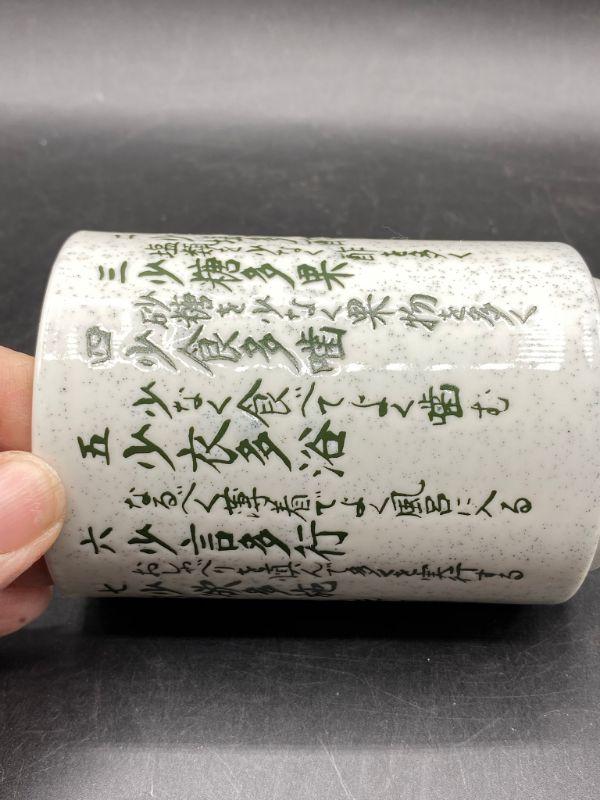 塩を少なく酢を多く
三 少糖多果
砂糖を少なく果物を多く
四 少食多噛
少なく食べてよく噛む
五 少衣多浴
なるべく薄着でよく風呂に入る
六 少言多行
おしゃべりを慎んで多くを実行する
七 少欲多施